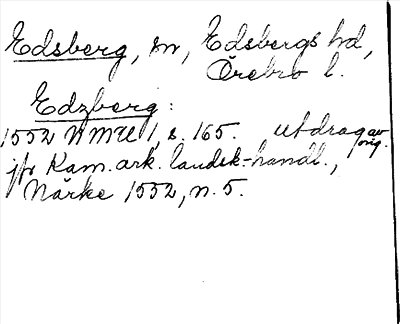 Edsberg, sn, Edsbergs hd,
Örebro l.
Edzberg:
1552 NMU 1, s. 165. utdrag av orig.
jfr Kam. ark. landsk.-handl.,
Närke 1552, n. 5.